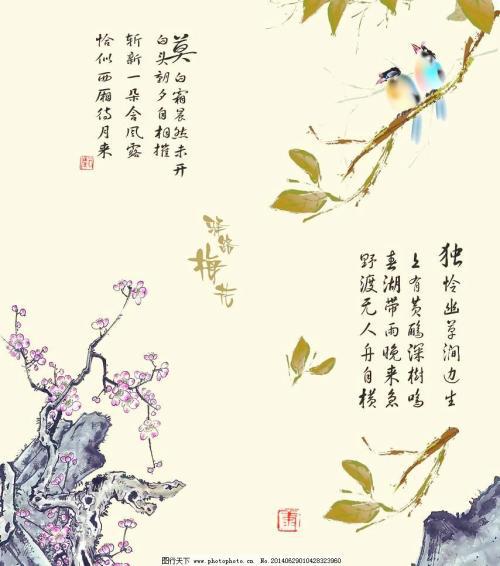 莫白霜晨然未开
白头朝夕自相摧
斩新一朵含风露
恰似西厢待月来
梅花
独怜幽草涧边生
上有黄鹂深树鸣
春湖带雨晚来急
野渡无人舟自横
图行天下 www.photophoto.cn No.20140629010428323960